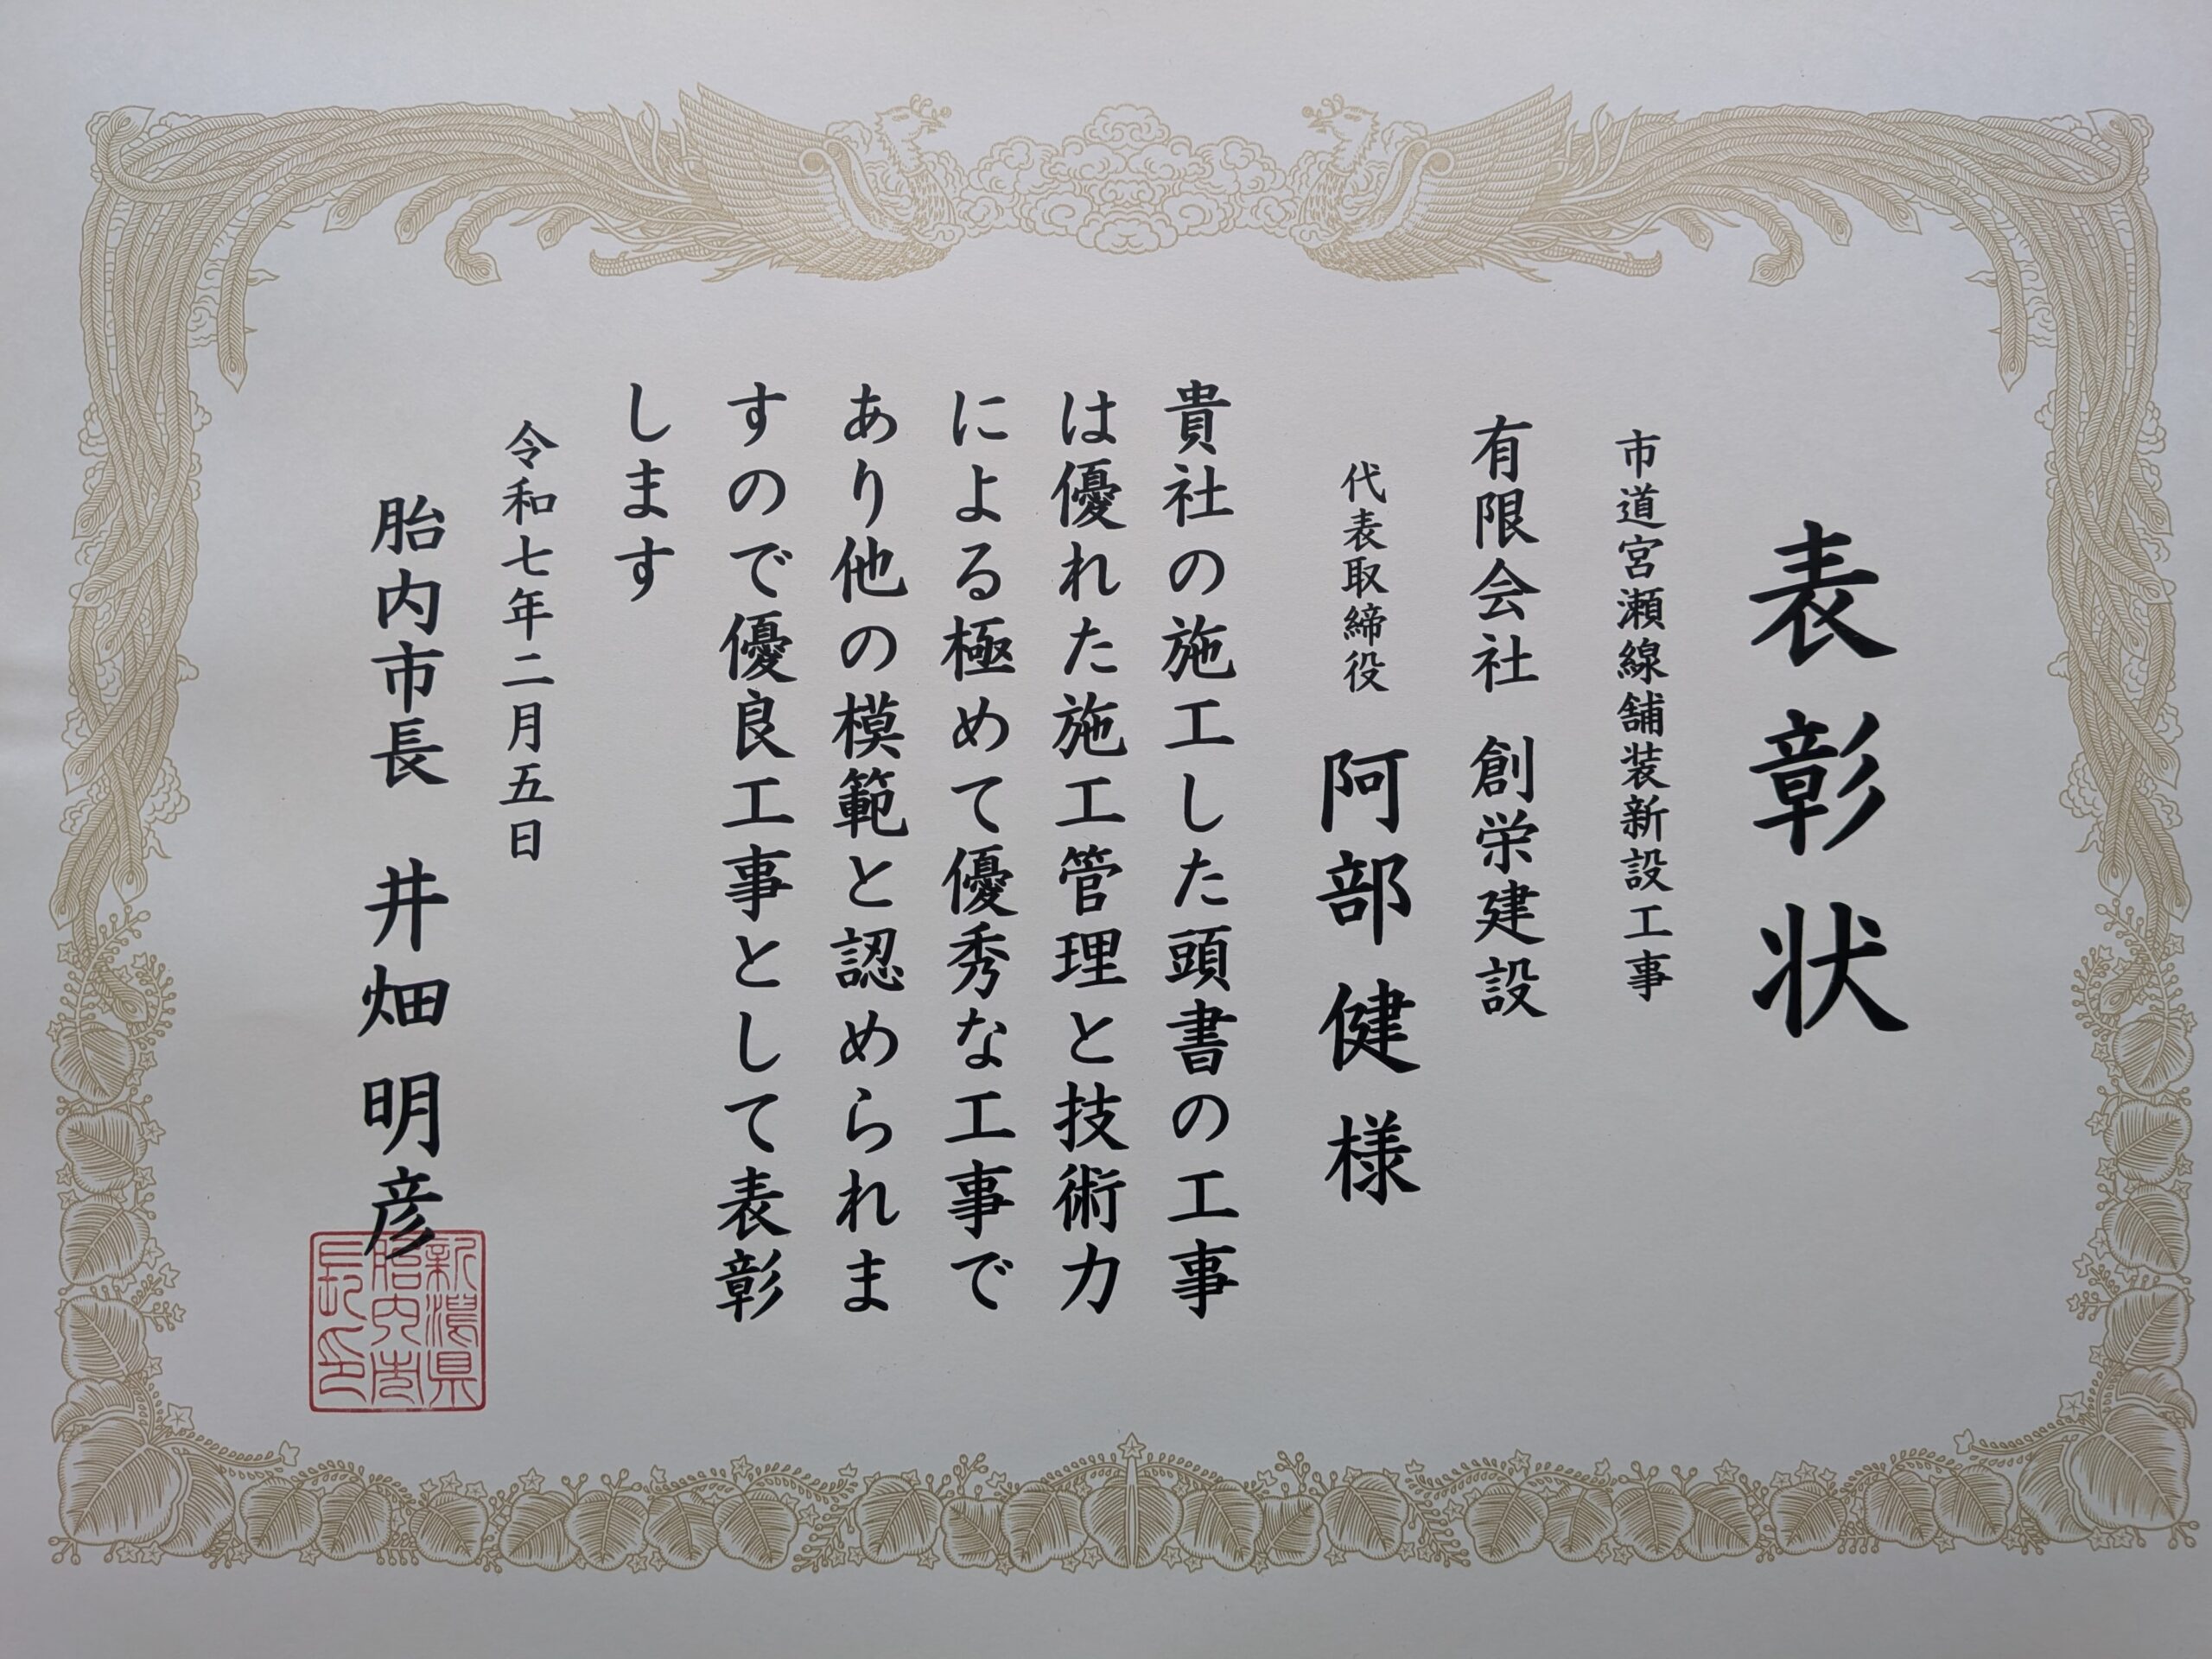 表彰状
市道宮瀬線舗装新設工事
有限会社 創栄建設
代表取締役 阿部 健 様
貴社の施工した頭書の工事
は優れた施工管理と技術力
による極めて優秀な工事で
あり他の模範と認められま
すので優良工事として表彰
します
令和七年二月五日
胎内市長 井畑 明彦
新潟県
胎内市
長印